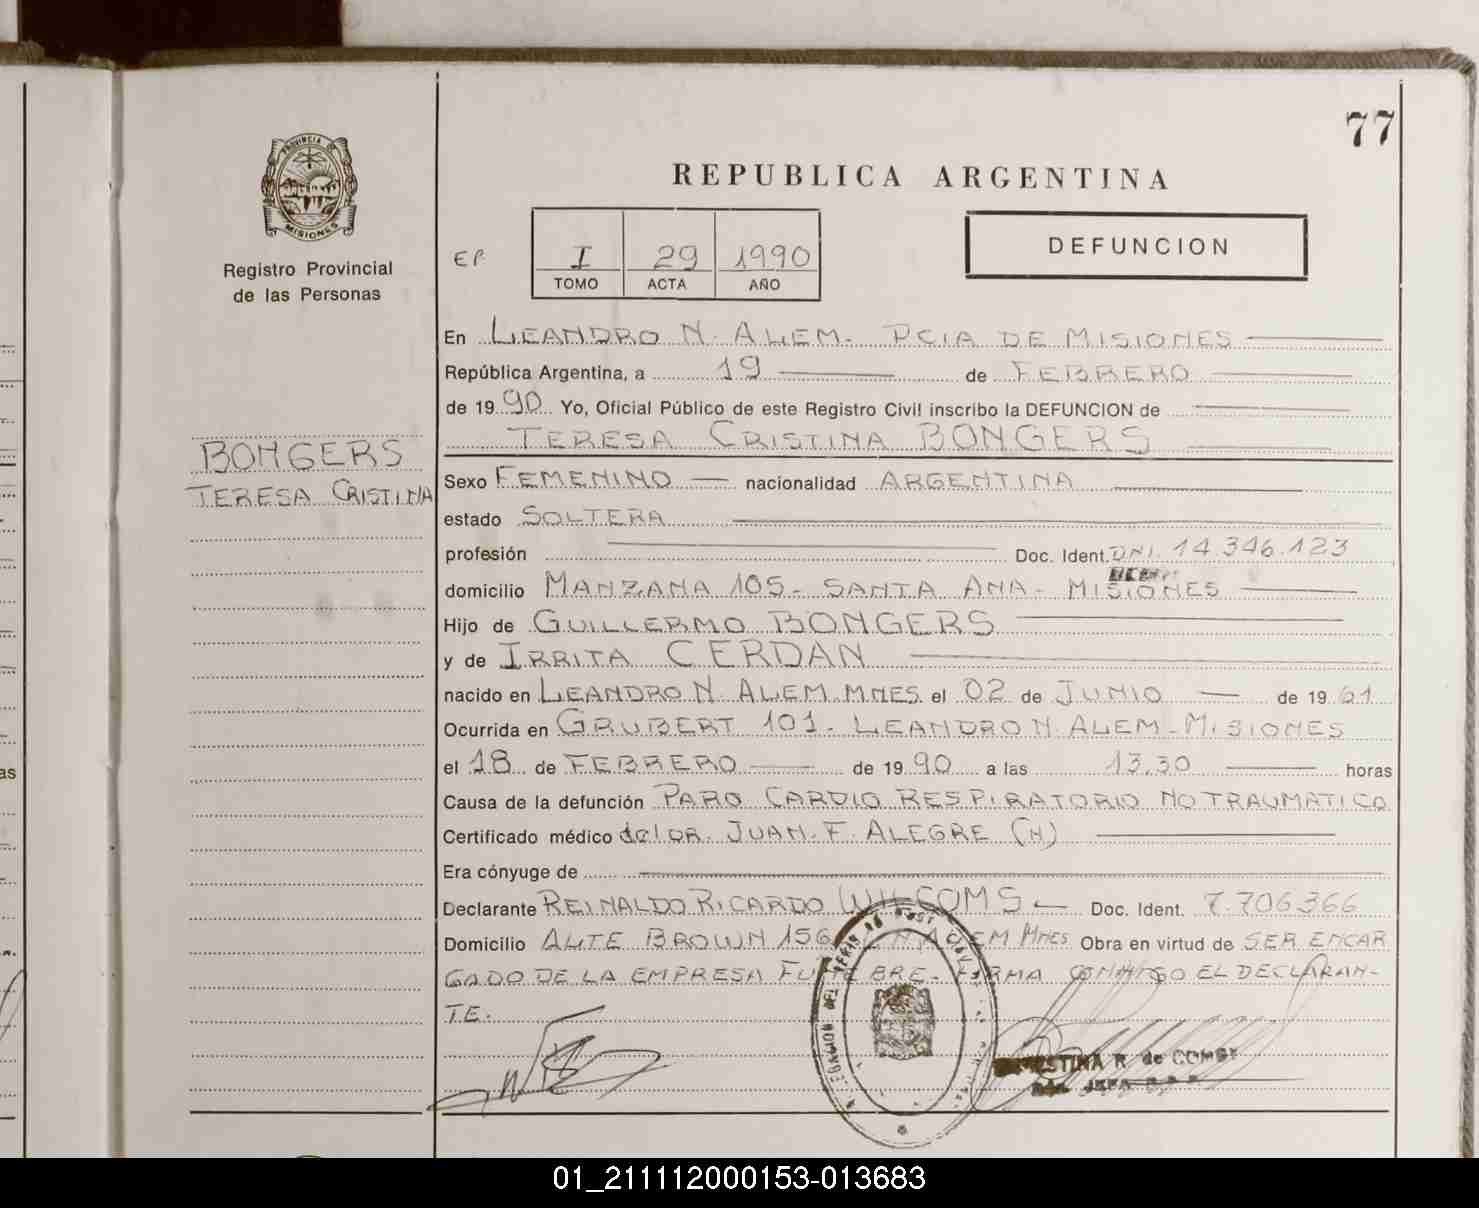 77
PROVINCIA DE
MISIONES
Registro Provincial
de las Personas
REPUBLICA ARGENTINA
DEFUNCION
I 29 1990
TOMO ACTA AÑO
En LEANDRO N. ALEM. PCIA DE MISIONES
República Argentina, a 19 de FEBRERO
de 1990 Yo, Oficial Público de este Registro Civil inscribo la DEFUNCION de
TERESA CRISTINA BONGERS
BONGERS
TERESA CRISTINA
Sexo FEMENINO nacionalidad ARGENTINA
estado SOLTERA
profesión Doc. Ident. DNI. 14.346.123
domicilio MANZANA 105 - SANTA ANA - MISIONES
Hijo de GUILLERMO BONGERS
y de IRRITA CERDAN
nacido en LEANDRO N. ALEM. MNES. el 02 de JUNIO de 1961
Ocurrida en GRUBERT 101 - LEANDRO N. ALEM - MISIONES
el 18 de FEBRERO de 1990 a las 13.30 horas
Causa de la defunción PARO CARDIO RESPIRATORIO NO TRAUMATICO
Certificado médico del DR. JUAN. F. ALEGRE (H)
Era cónyuge de
Declarante REINALDO RICARDO WILCOMS Doc. Ident. 7.706366
Domicilio ALTE BROWN 156 L N. ALEM MNES Obra en virtud de SER ENCAR
GADO DE LA EMPRESA FUNEBRE. FIRMA CONMIGO EL DECLARAN-
TE.
R. de
01_211112000153-013683